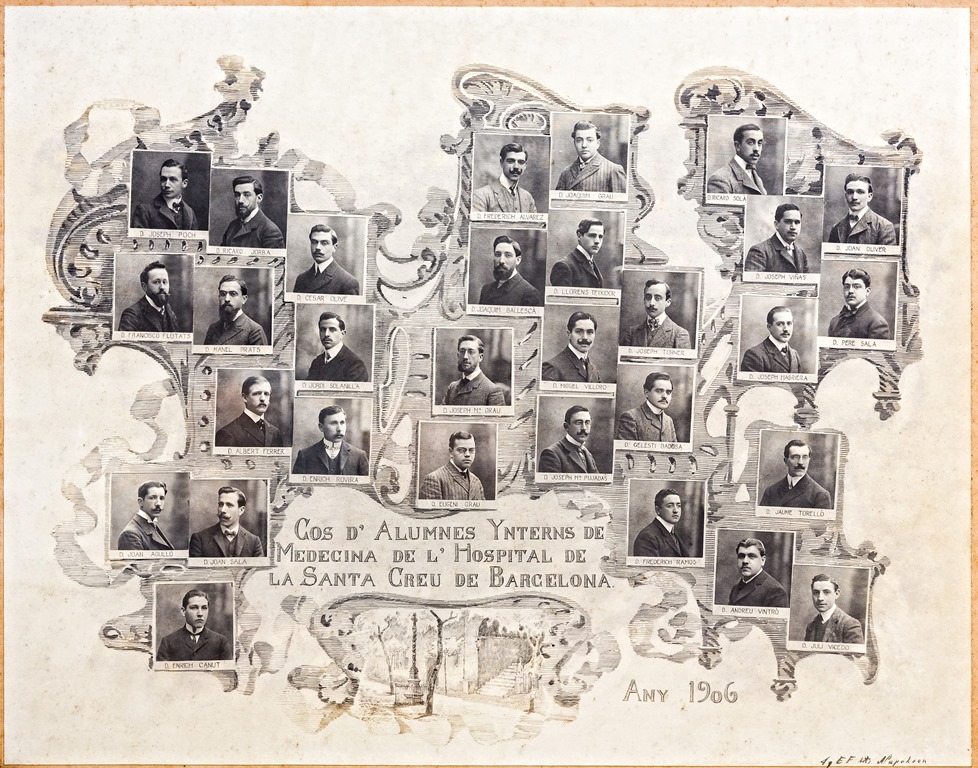 D. JOSEPH POCH
D. RICARD JORBA
D. CESAR OLIVÉ
D. FRANCISCO FLEITATS
D. MANEL PRATS
D. JORDI SOLANILLA
D. ALBERT FERRER
D. ENRICH ROVIRA
D. JOAN AGULLÓ
D. JOAN SALA
D. ENRICH CANUT
D. FREDERICH ALVAREZ
D. JOAQUIM GRAU
D. JOAQUIM BALLESCA
D. LLORENS TEIXIDOR
D. JOSEPH TORNER
D. JOSEPH Mª GRAU
D. MIQUEL VILLORO
D. EUGENI GRAU
D. JOSEPH Mª PUJADAS
D. CELESTI BADOSA
D. RICARD SOLA
D. JOAN OLIVER
D. JOSEPH VIÑAS
D. PERE SALA
D. JOSEPH MADRIERA
D. JAUME TORELLÓ
D. FREDERICH RAMOS
D. ANDREU VINTRÓ
D. JULI VICEDO
COS D' ALUMNES YNTERNS DE
MEDECINA DE L' HOSPITAL DE
LA SANTA CREU DE BARCELONA.
ANY 1906
Napoleon